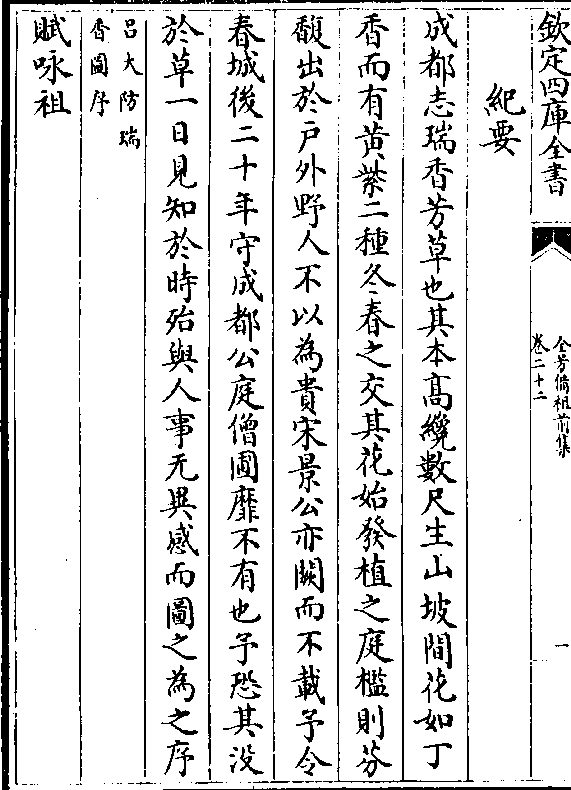 欽定四庫全書
全芳備祖前集
卷二十二
一
紀要
成都志瑞香芳草也其本髙纔數尺生山坡間花如丁
香而有黄紫二種冬春之交其花始發植之庭檻則芬
馥出於戸外野人不以為貴宋景公亦闕而不載予令
春城後二十年守成都公庭僧圃靡不有也予恐其没
於草一日見知於時殆與人事无異感而圖之為之序
吕大防瑞
香圖序
賦咏祖